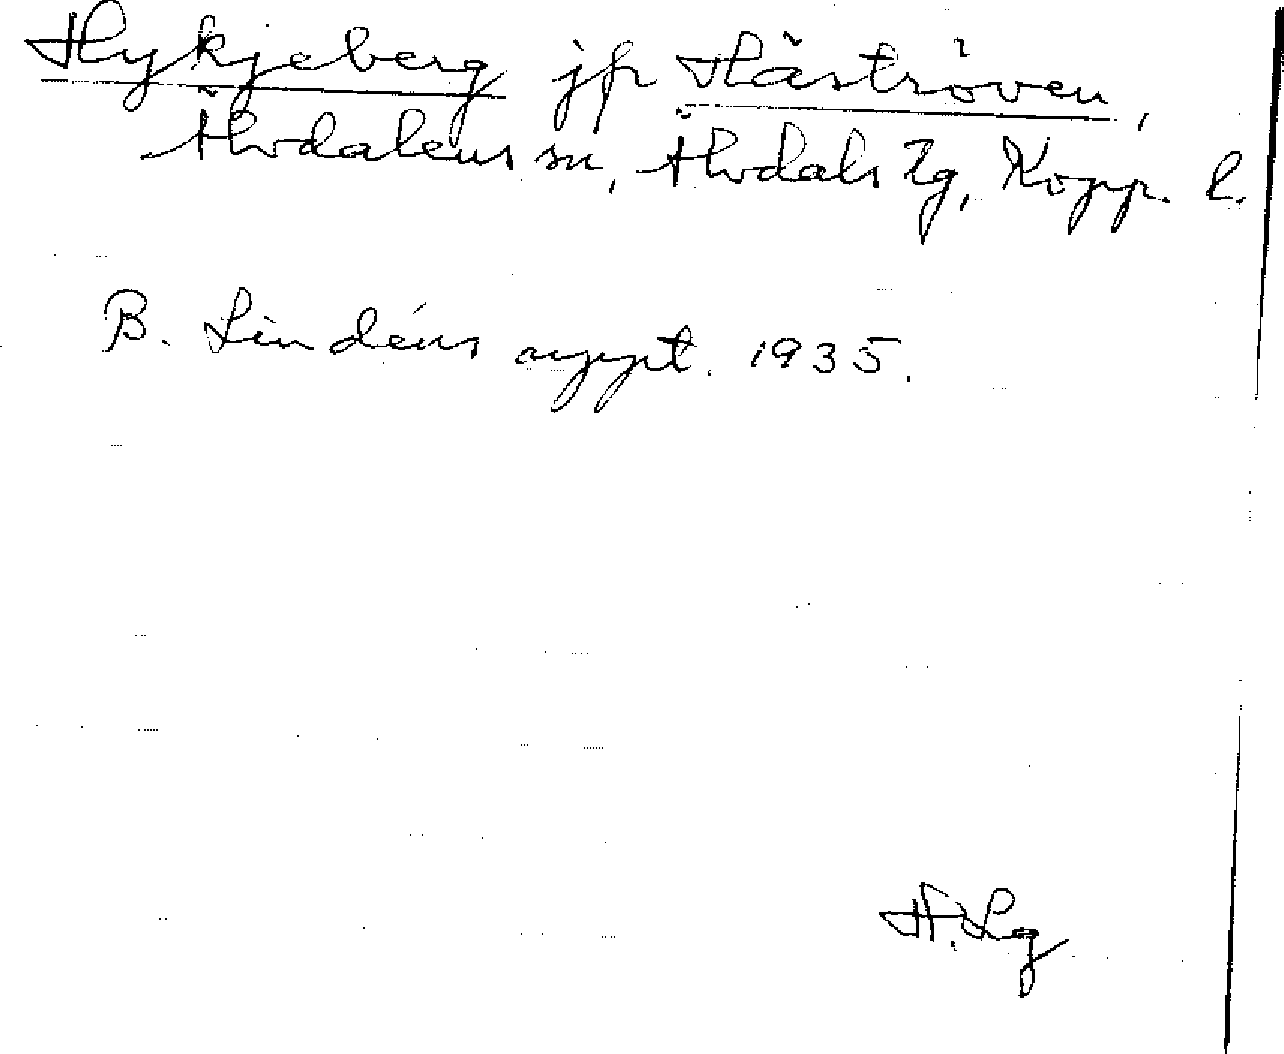 Hykjeberg jfr Håströven,
Älvdalens sn, Älvdals tg, Kopp. l.
B. Lindéns uppt. 1935.
H. Lg